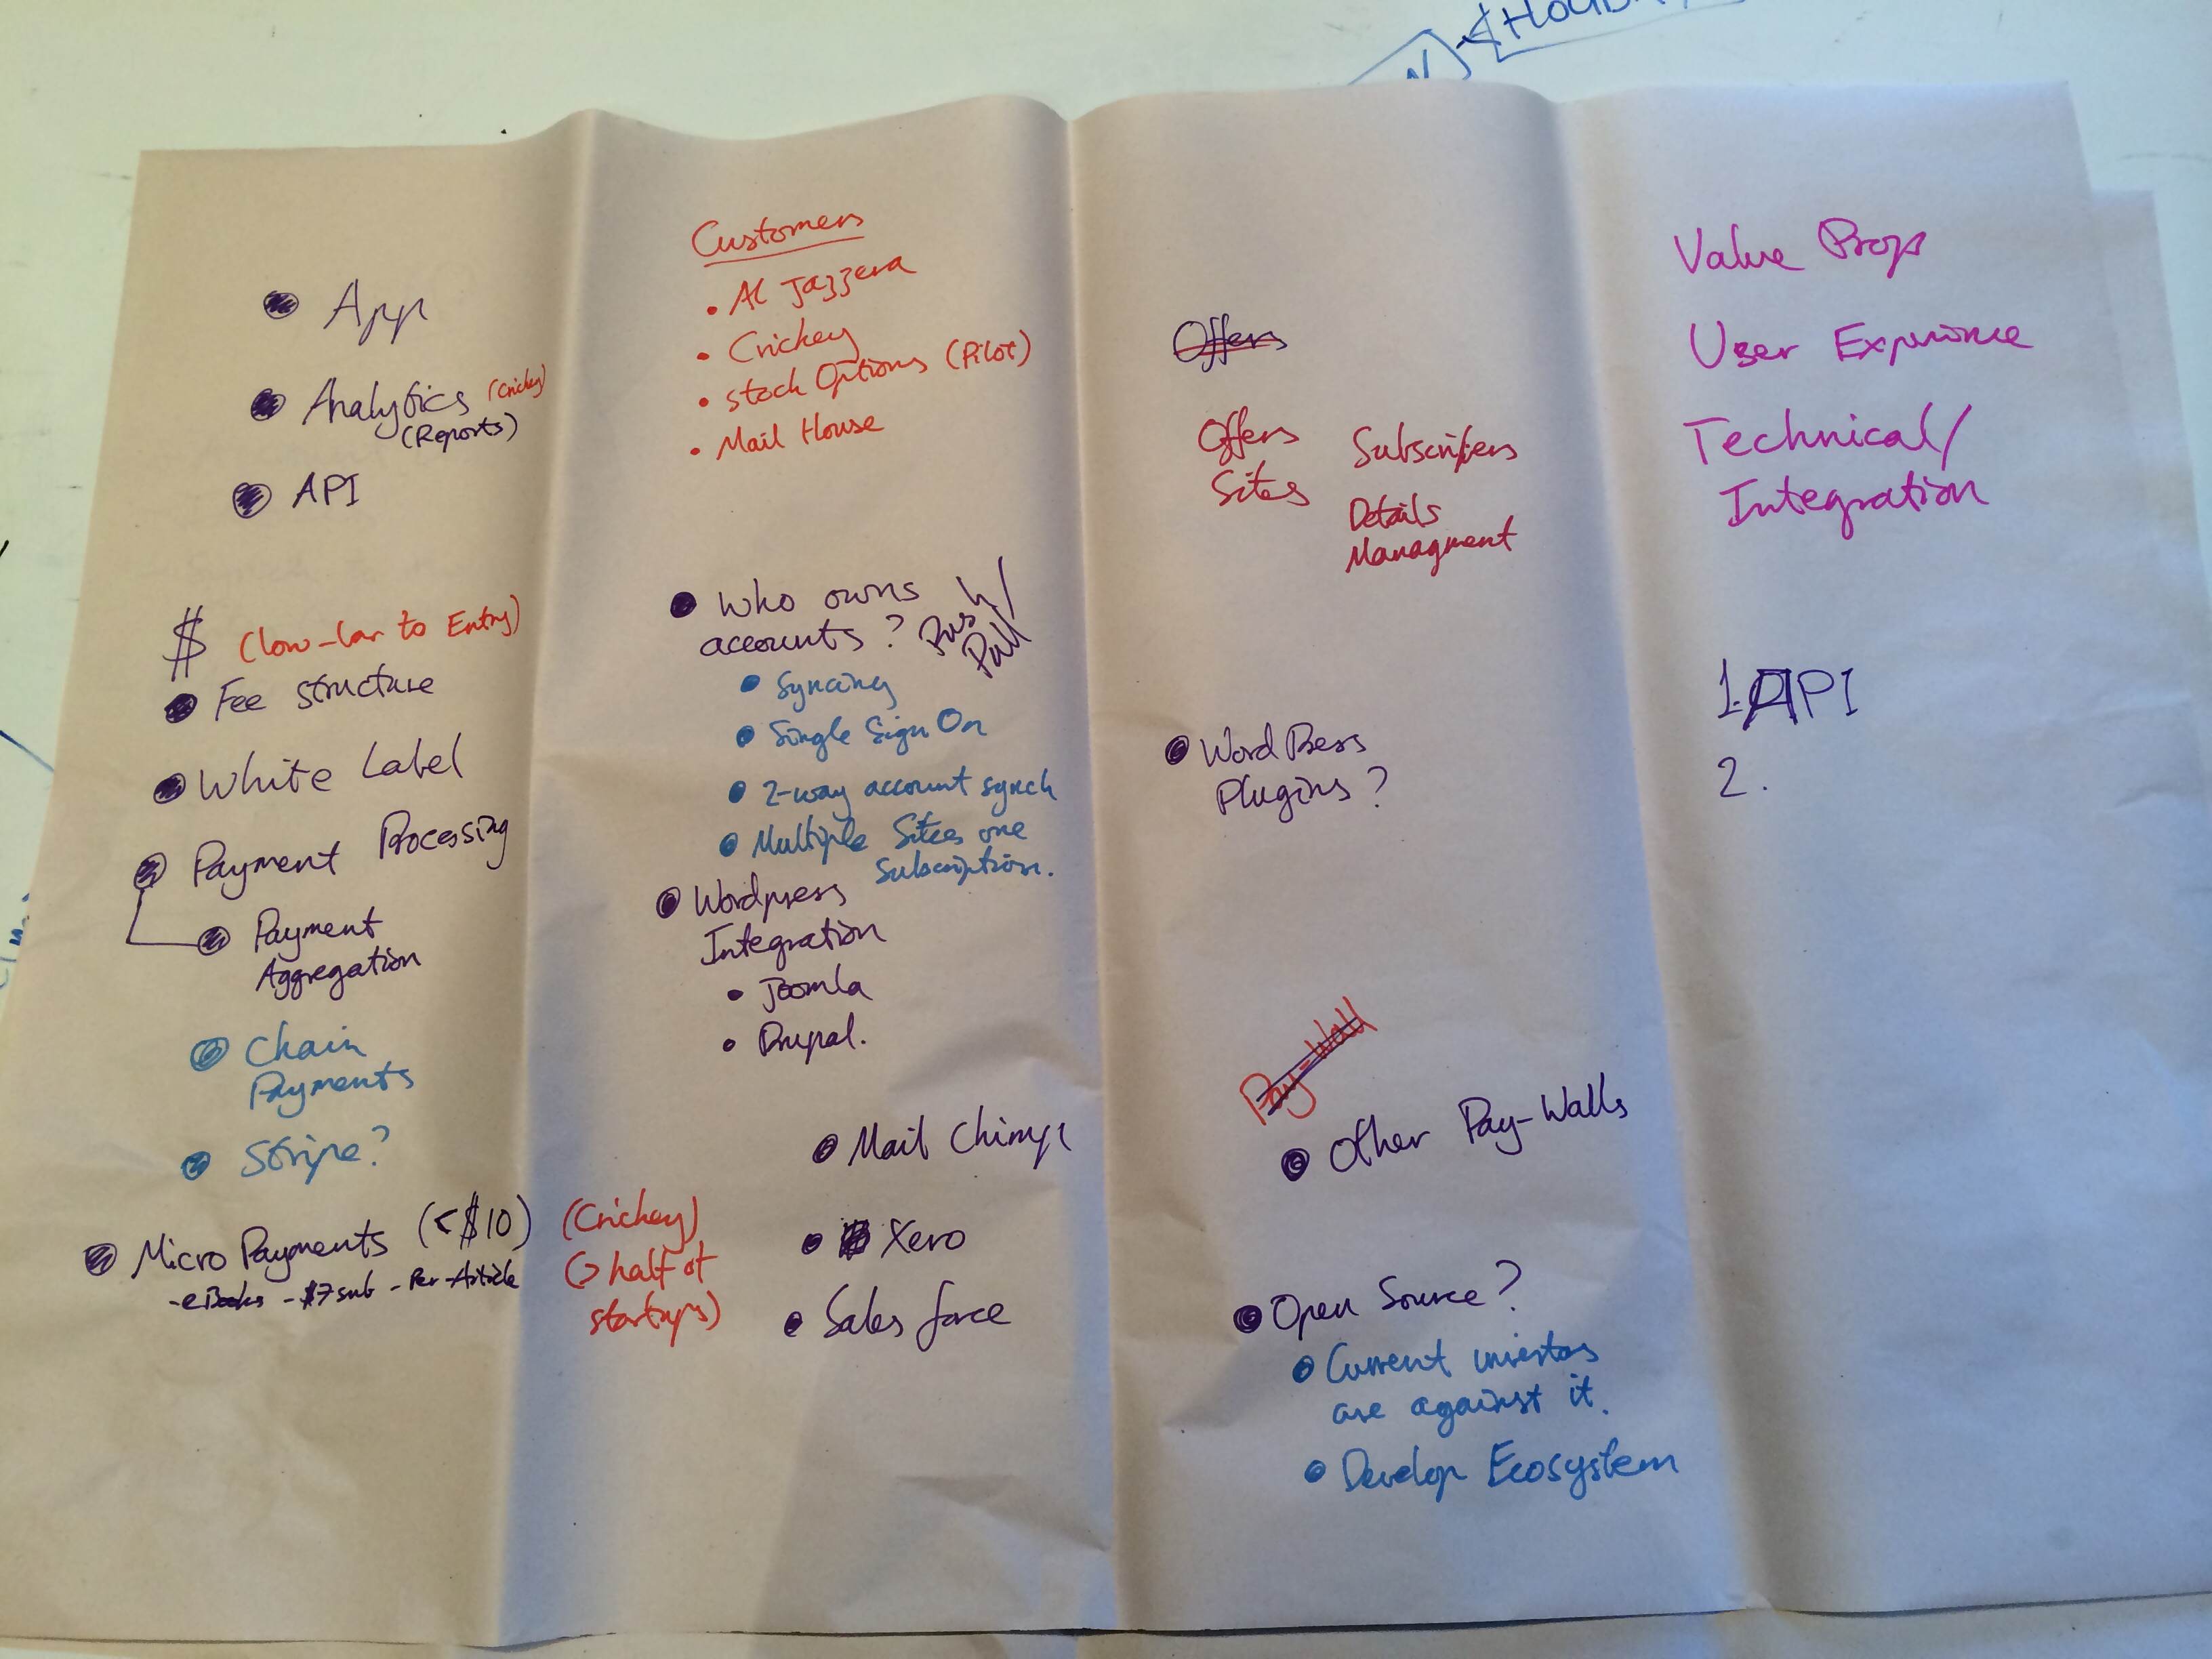 App
Analytics (Crickey)
(Reports)
API
$ (low-bar to Entry)
Fee structure
White Label
Payment Processing
Payment
Aggregation
Chain
Payments
Stripe?
Micro Payments (<$10)
-eBooks -$7 sub -Per-Article
(Crickey)
(> half of
startups)
Customers
• Al Jazzera
• Crickey
• Stock Options (Pilot)
• Mail House
Who owns
accounts?
Push/
Pull
Syncing
Single Sign On
2-way account synch
Multiple Sites one
Subscription.
Wordpress
Integration
• Joomla
• Drupal.
Mail Chimp
Xero
Sales force
Offers
Offers
Sites
Subscribers
Details
Managment
WordPress
Plugins?
Pay-Wall
Other Pay-Walls
Open Source?
Current investors
are against it.
Develop Ecosystem
Value Prop
User Experience
Technical/
Integration
1. API
2.